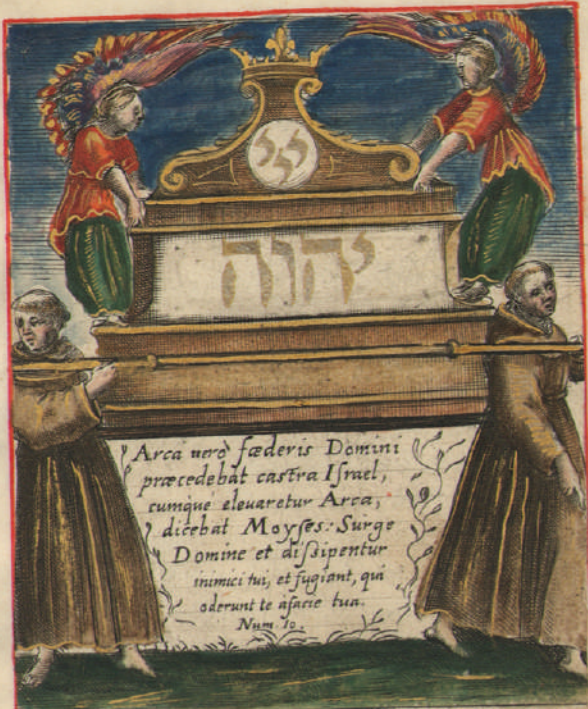 ייי
יהוה
Arca uerò fæderis Domini
præcedebat castra Iſrael,
cumque eleuaretur Arca,
dicebat Moyſes: Surge
Domine et diſsipentur
inimici tui, et fugiant, qui
oderunt te àfacie tua.
Num. 10.